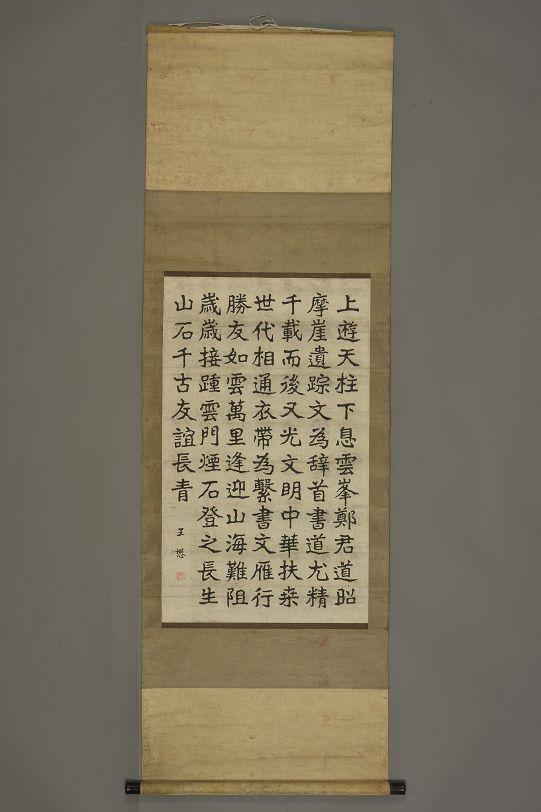 上遊天柱下息雲峯鄭君道昭
摩崖遺踪文為辞首書道尤精
千載而後又光文明中華扶桒
世代相通衣帶為繫書文雁行
勝友如雲萬里逢迎山海難阻
歲歲接踵雲門煙石登之長生
山石千古友誼長青
王懋